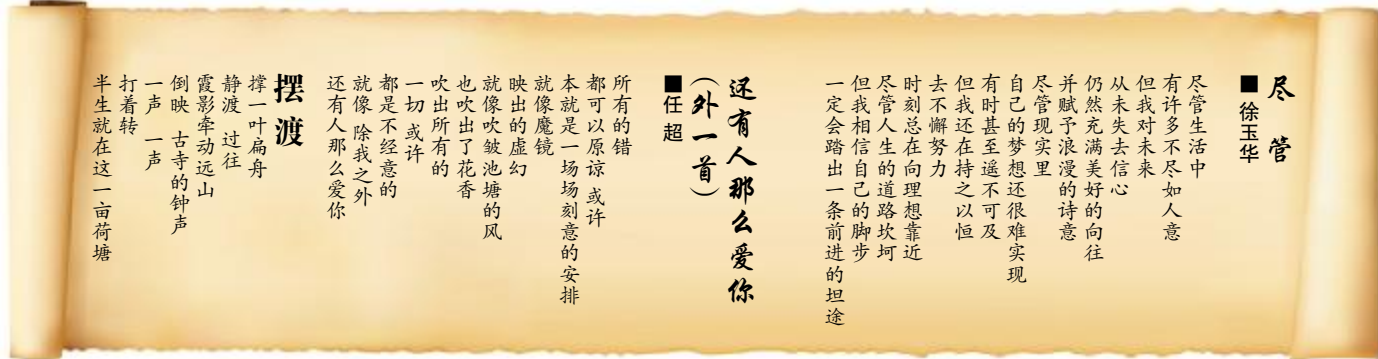 尽管
■徐玉华
尽管生活中
有许多不尽如人意
但我对未来
从未失去信心
仍然充满美好的向往
并赋予浪漫的诗意
尽管现实里
自己的梦想还很难实现
有时甚至遥不可及
但我还在持之以恒
去不懈努力
时刻总在向理想靠近
尽管人生的道路坎坷
但我相信自己的脚步
一定会踏出一条前进的坦途
还有人那么爱你
（外一首）
■任超
所有的错
都可以原谅 或许
本就是一场场刻意的安排
就像魔镜
映出的虚幻
就像吹皱池塘的风
也吹出了花香
吹出所有的
一切 或许
都是不经意的
就像 除我之外
还有人那么爱你
摆渡
撑一叶扁舟
静渡 过往
霞影牵动远山
倒映 古寺的钟声
一声 一声
打着转
半生就在这一亩荷塘